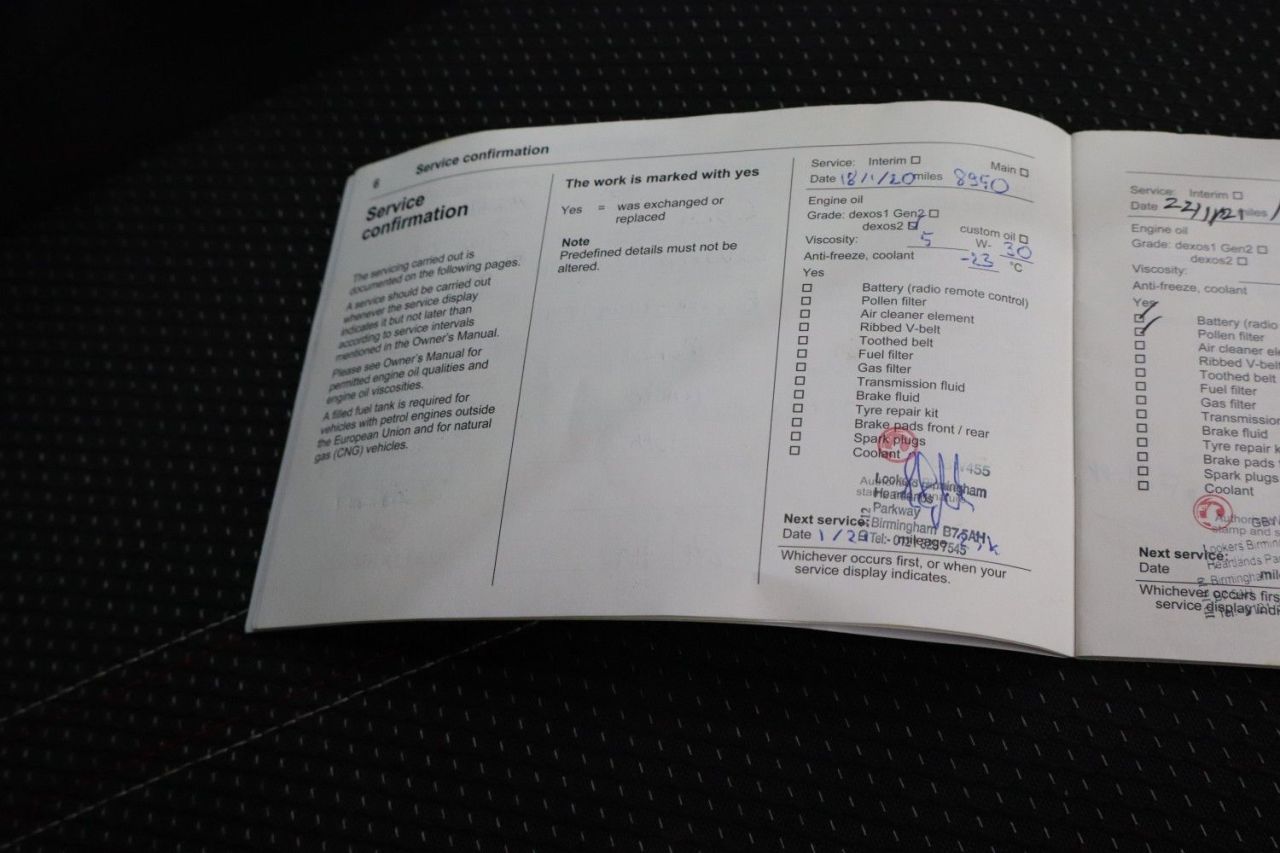 6
Service confirmation
Service
confirmation
The servicing carried out is
documented on the following pages.
A service should be carried out
whenever the service display
indicates it but not later than
according to service intervals
mentioned in the Owner's Manual.
Please see Owner's Manual for
permitted engine oil qualities and
engine oil viscosities.
A filled fuel tank is required for
vehicles with petrol engines outside
the European Union and for natural
gas (CNG) vehicles.
The work is marked with yes
Yes = was exchanged or
replaced
Note
Predefined details must not be
altered.
Service: Interim ☐ Main ☐
Date 18/1/20 miles 8950
Engine oil
Grade: dexos1 Gen2 ☐
dexos2 ☑ custom oil ☐
Viscosity: 5 W- 30
Anti-freeze, coolant -23 °C
Yes
☐ Battery (radio remote control)
☐ Pollen filter
☐ Air cleaner element
☐ Ribbed V-belt
☐ Toothed belt
☐ Fuel filter
☐ Gas filter
☐ Transmission fluid
☐ Brake fluid
☐ Tyre repair kit
☐ Brake pads front / rear
☐ Spark plugs
☐ Coolant
Lookers Birmingham
Heartlands
Parkway
Birmingham B7 5AH
Next service:
Date 1/21 mileage
Whichever occurs first, or when your
service display indicates.
Service: Interim ☐
Date 22/1/21 miles
Engine oil
Grade: dexos1 Gen2 ☐
dexos2 ☐
Viscosity:
Anti-freeze, coolant
Yes
☑ Battery (radio
☑ Pollen filter
☐ Air cleaner
☐ Ribbed V-belt
☐ Toothed belt
☐ Fuel filter
☐ Gas filter
☐ Transmission
☐ Brake fluid
☐ Tyre repair
☐ Brake pads
☐ Spark plugs
☐ Coolant
Next service:
Date
Whichever occurs
service display